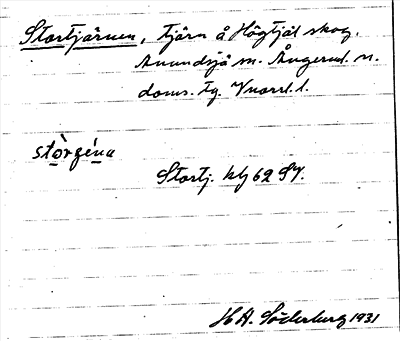 Stortjärnen, tjärn å Högtjäl skog.
Anundsjö sn. Ångerml. n.
doms. tg. Vnorrl. l.
stòrgéna
Stortj. kbj 62 SV.
H A. Söderberg 1931